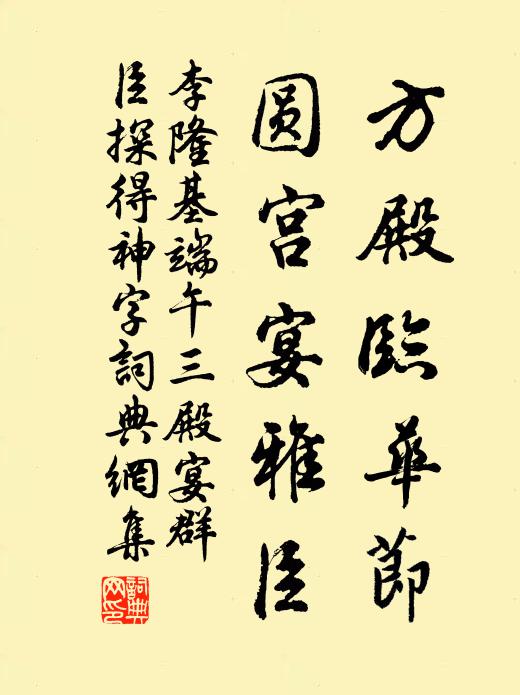 方殿臨華節
圆宫宴雅臣
李隆基端午三殿宴群
臣探得神字詞典網集
詞典网印